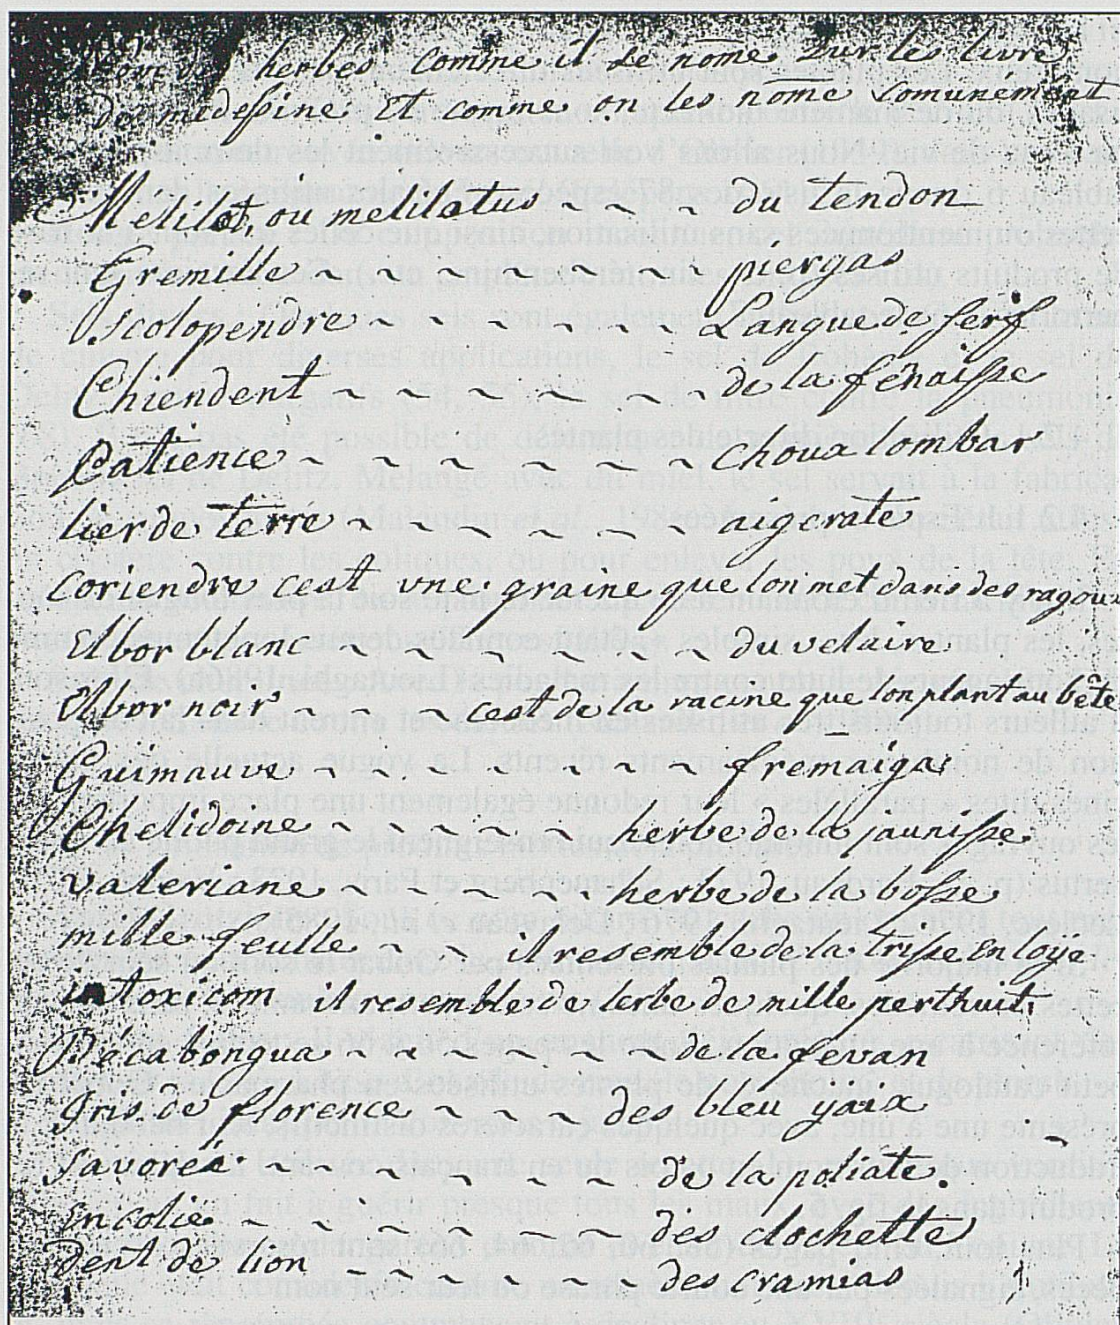 herbes Comme il se nome sur les livre
de medessine Et comme on les nome Comunement
Melilot, ou melilotus ~ ~ ~ ~ du tendon
Gremille ~ ~ ~ ~ ~ ~ ~ piergas
Scolopendre ~ ~ ~ ~ ~ ~ Langue de serf
Chiendent ~ ~ ~ ~ ~ ~ de la fenaisse
Patience ~ ~ ~ ~ ~ ~ ~ choux lombar
lier de terre ~ ~ ~ ~ ~ ~ aigerate
coriendre cest une graine que lon met dans des ragou
Elbor blanc ~ ~ ~ ~ ~ ~ du velaire
Elbor noir ~ ~ ~ cest de la racine que lon plant au bête
Guimauve ~ ~ ~ ~ ~ ~ ~ fremaigas
Chelidoine ~ ~ ~ ~ ~ herbe de la jaunisse
Valeriane ~ ~ ~ ~ ~ herbe de la bosse
mille feulle ~ ~ ~ il resemble de la trisse En loye
intoxicom il resemble de lerbe de mille perthuit
Bacabongua ~ ~ ~ ~ ~ ~ de la favan
Gris de florence ~ ~ ~ ~ des bleu yaux
Savoreé ~ ~ ~ ~ ~ ~ de la poliate.
Encolie ~ ~ ~ ~ ~ ~ ~ des clochette
Dent de lion ~ ~ ~ ~ ~ ~ des cramias